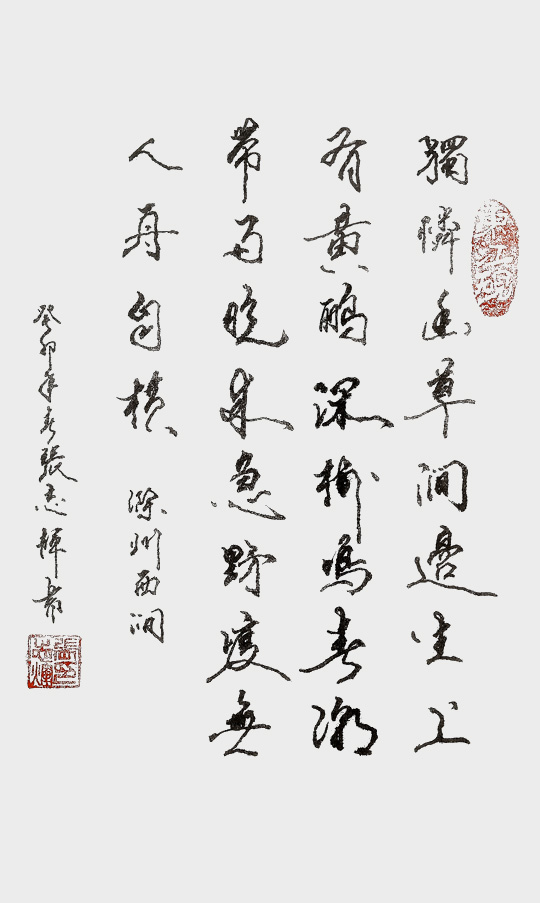 獨憐幽草澗邊生上
有黃鸝深樹鳴春潮
帶雨晚来急野渡無
人舟自橫 滁州西澗
癸卯年春張志輝書